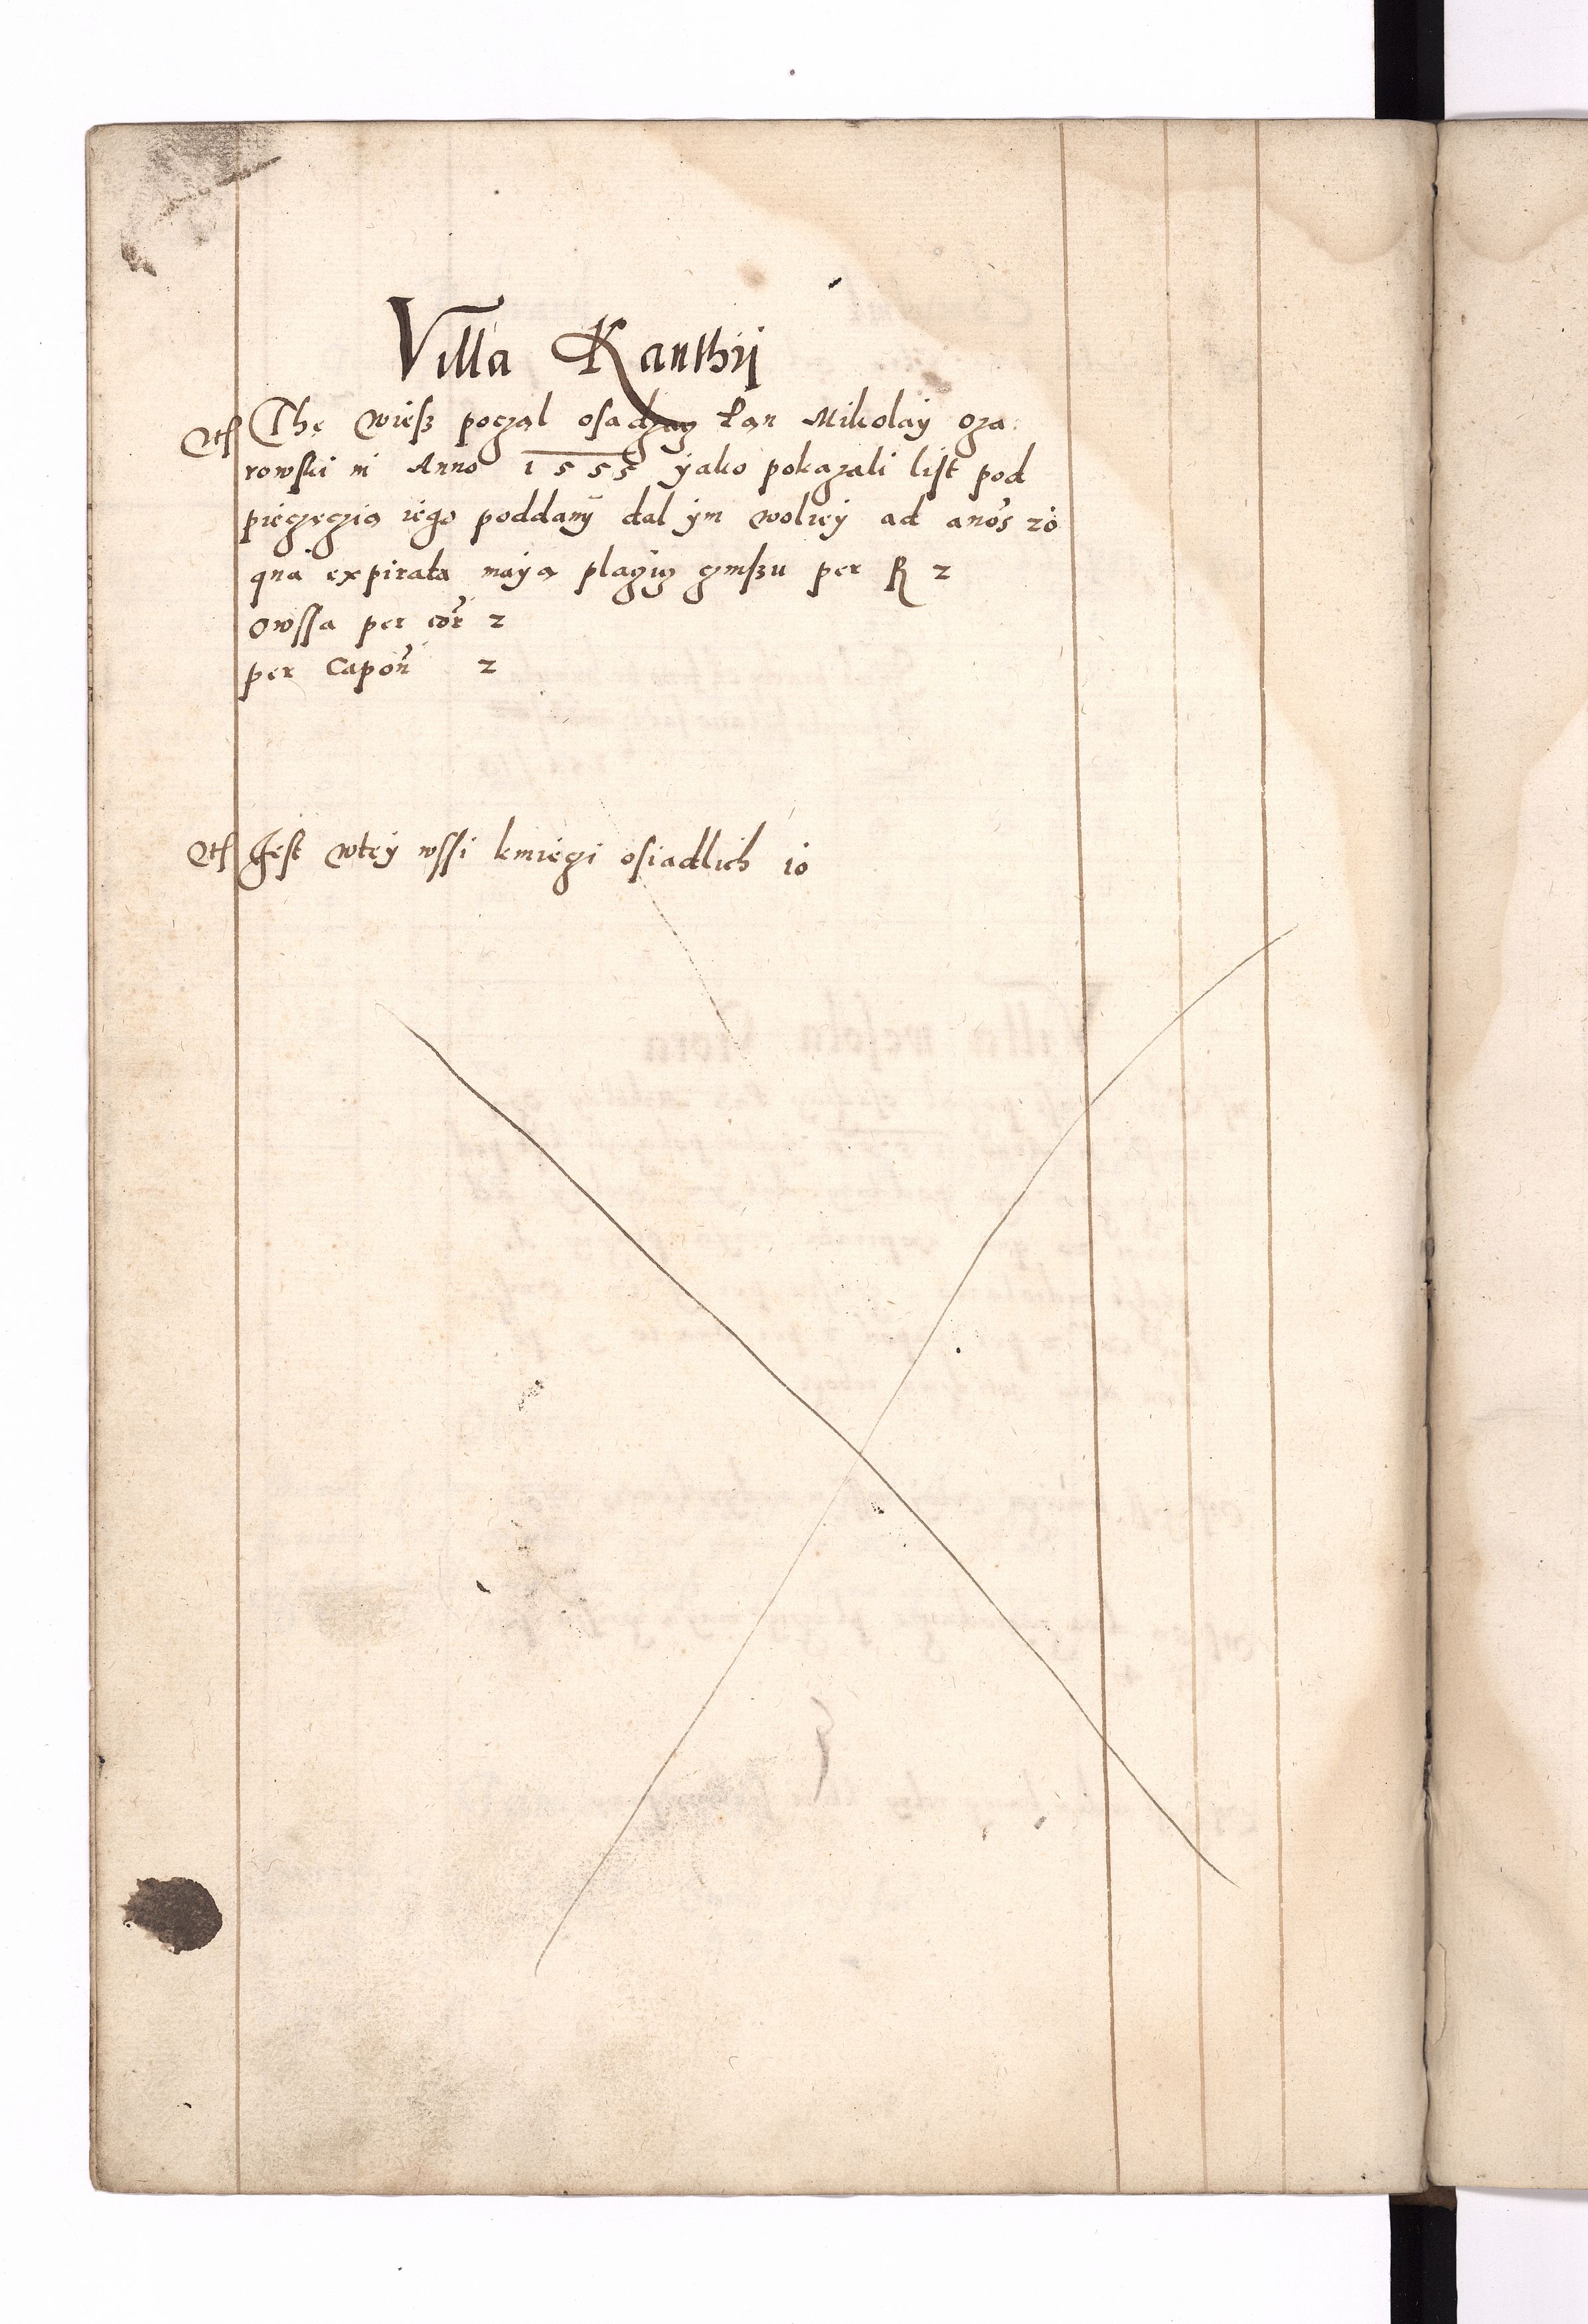 Villa Kanthy
Thę wiesz poczal osadzacz Pan Mikolay Oza
rowski in Anno 1555 yako pokazali list pod
pieczęczią iego poddany dal ym woliey ad anos 20
qua expirata mayą placzicz czinszu per R 2
Owssa per cor 2
per Capon 2
Jest wtey wssi kmieczi osiadlich 10